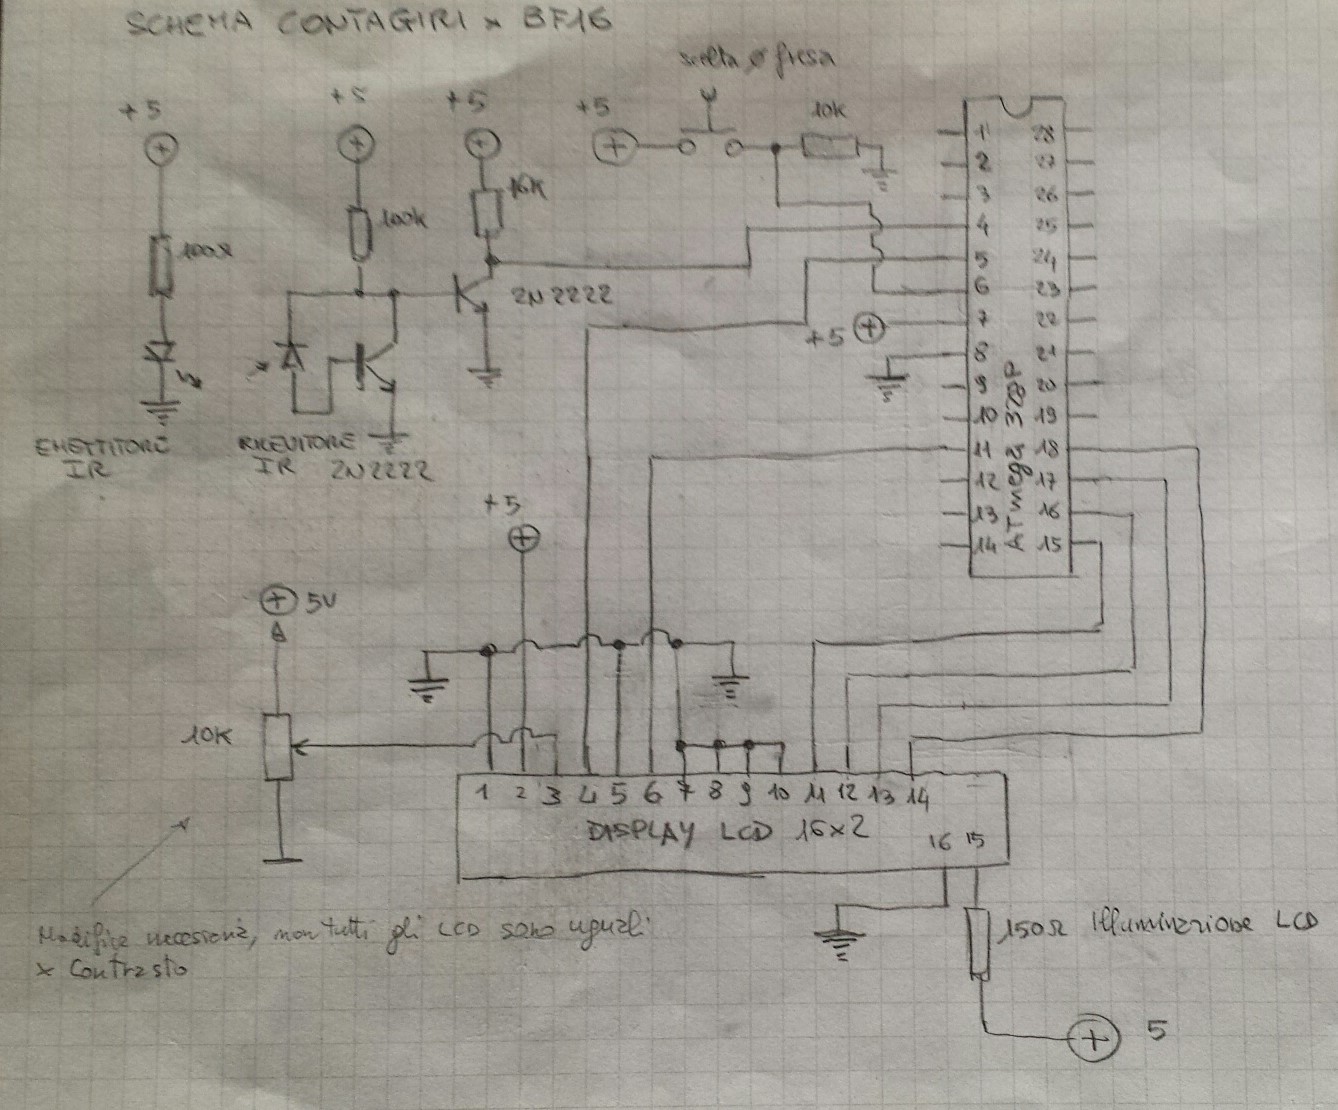 SCHEMA CONTAGIRI x BF16
scelta ø fresa
+5
+5
+5
+5
10k
16K
100k
100Ω
2N2222
+5
EMETTITORE
IR
RICEVITORE
IR 2N2222
1
2
3
4
5
6
7
8
9
10
11
12
13
14
28
27
26
25
24
23
22
21
20
19
18
17
16
15
ATmega 328P
+5
5V
10K
1 2 3 4 5 6 7 8 9 10 11 12 13 14
DISPLAY LCD 16x2
16 15
Modifica necessaria, non tutti gli LCD sono uguali
x Contrasto
150Ω Illuminazione LCD
5